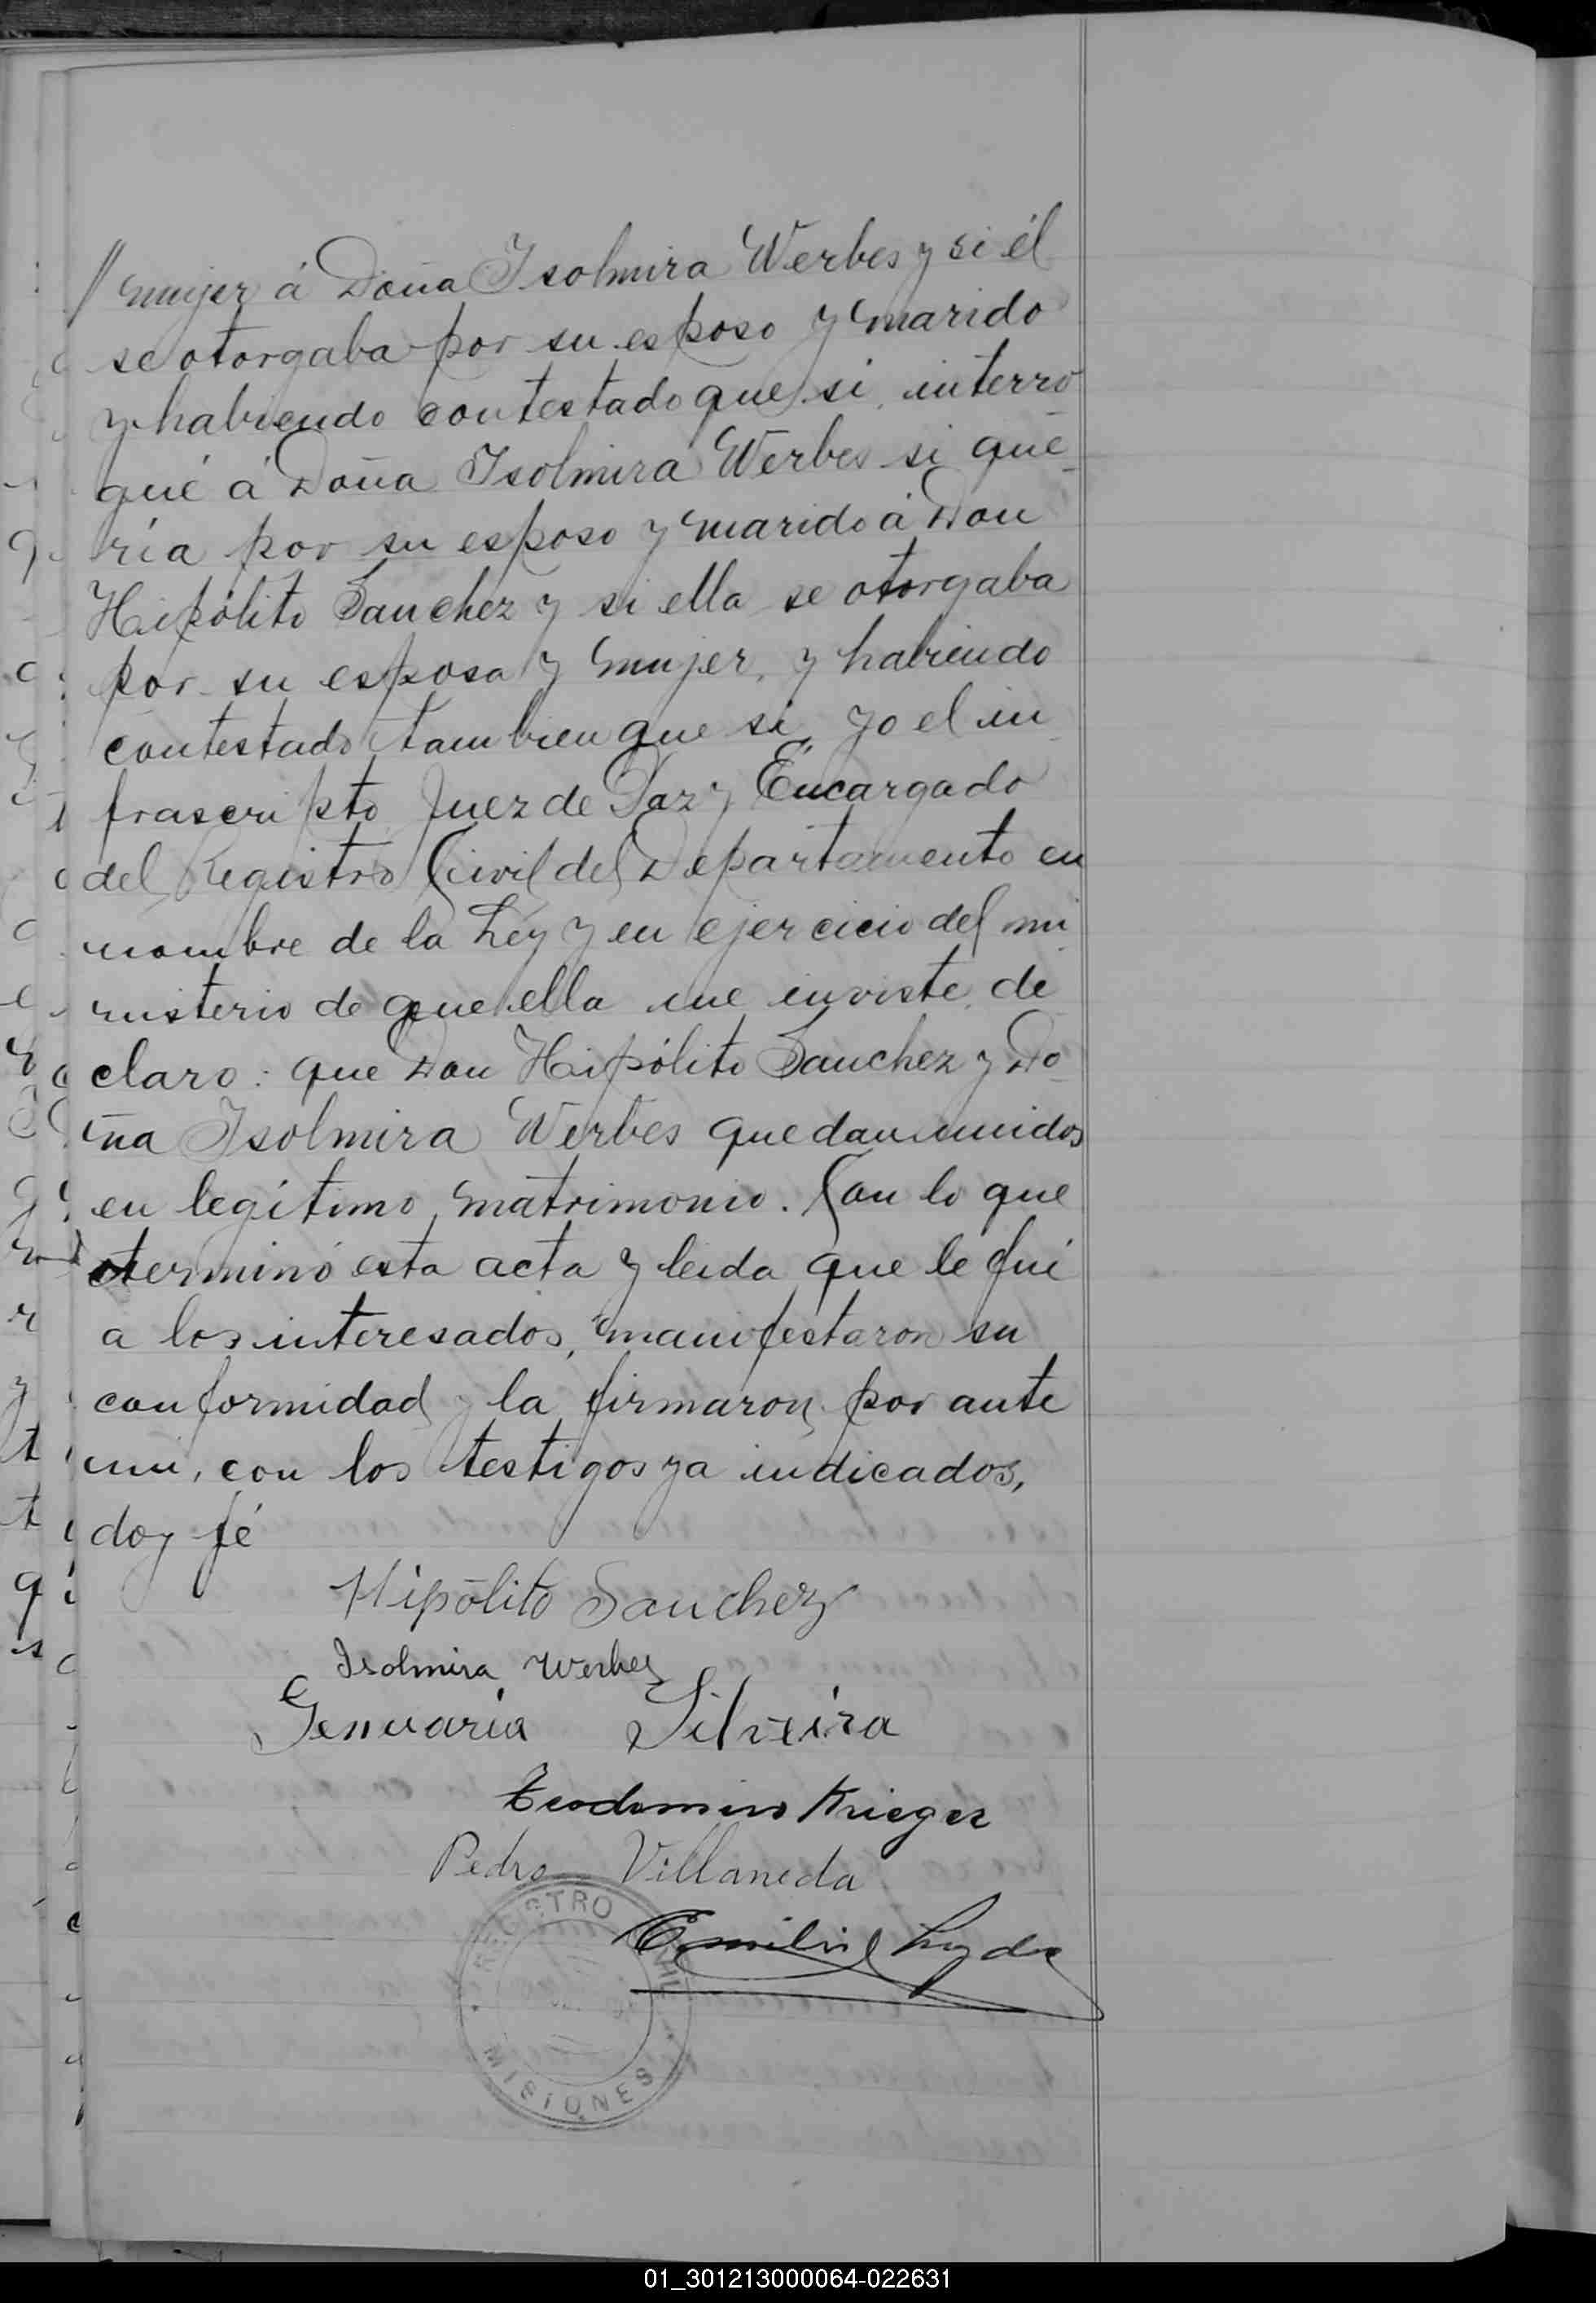 // mujer á Doña Isolmira Werbes y si él
se otorgaba por su esposo y marido
y habiendo contestado que si, interro
gué á Doña Isolmira Werbes si que
ría por su esposo y marido á Don
Hipólito Sanchez y si ella se otorgaba
por su esposa y mujer, y habiendo
contestado tambien que si, yo el in
frascripto Juez de Paz y Encargado
del Registro Civil del Departamento en
nombre de la Ley y en ejercicio del mi
nisterio de que ella me inviste, de
claro: que Don Hipólito Sanchez y Do
ña Isolmira Werbes quedan unidos
en legítimo matrimonio. Con lo que
terminó esta acta y leida que le fué
a los interesados, manifestaron su
conformidad y la firmaron por ante
mi, con los testigos ya indicados,
doy fé
Hipólito Sanchez
Isolmira Werbes
Genuaria Silveira
Teodomiro Krieger
Pedro Villaneda
Emilio
REGISTRO CIVIL
MISIONES
01_301213000064-022631